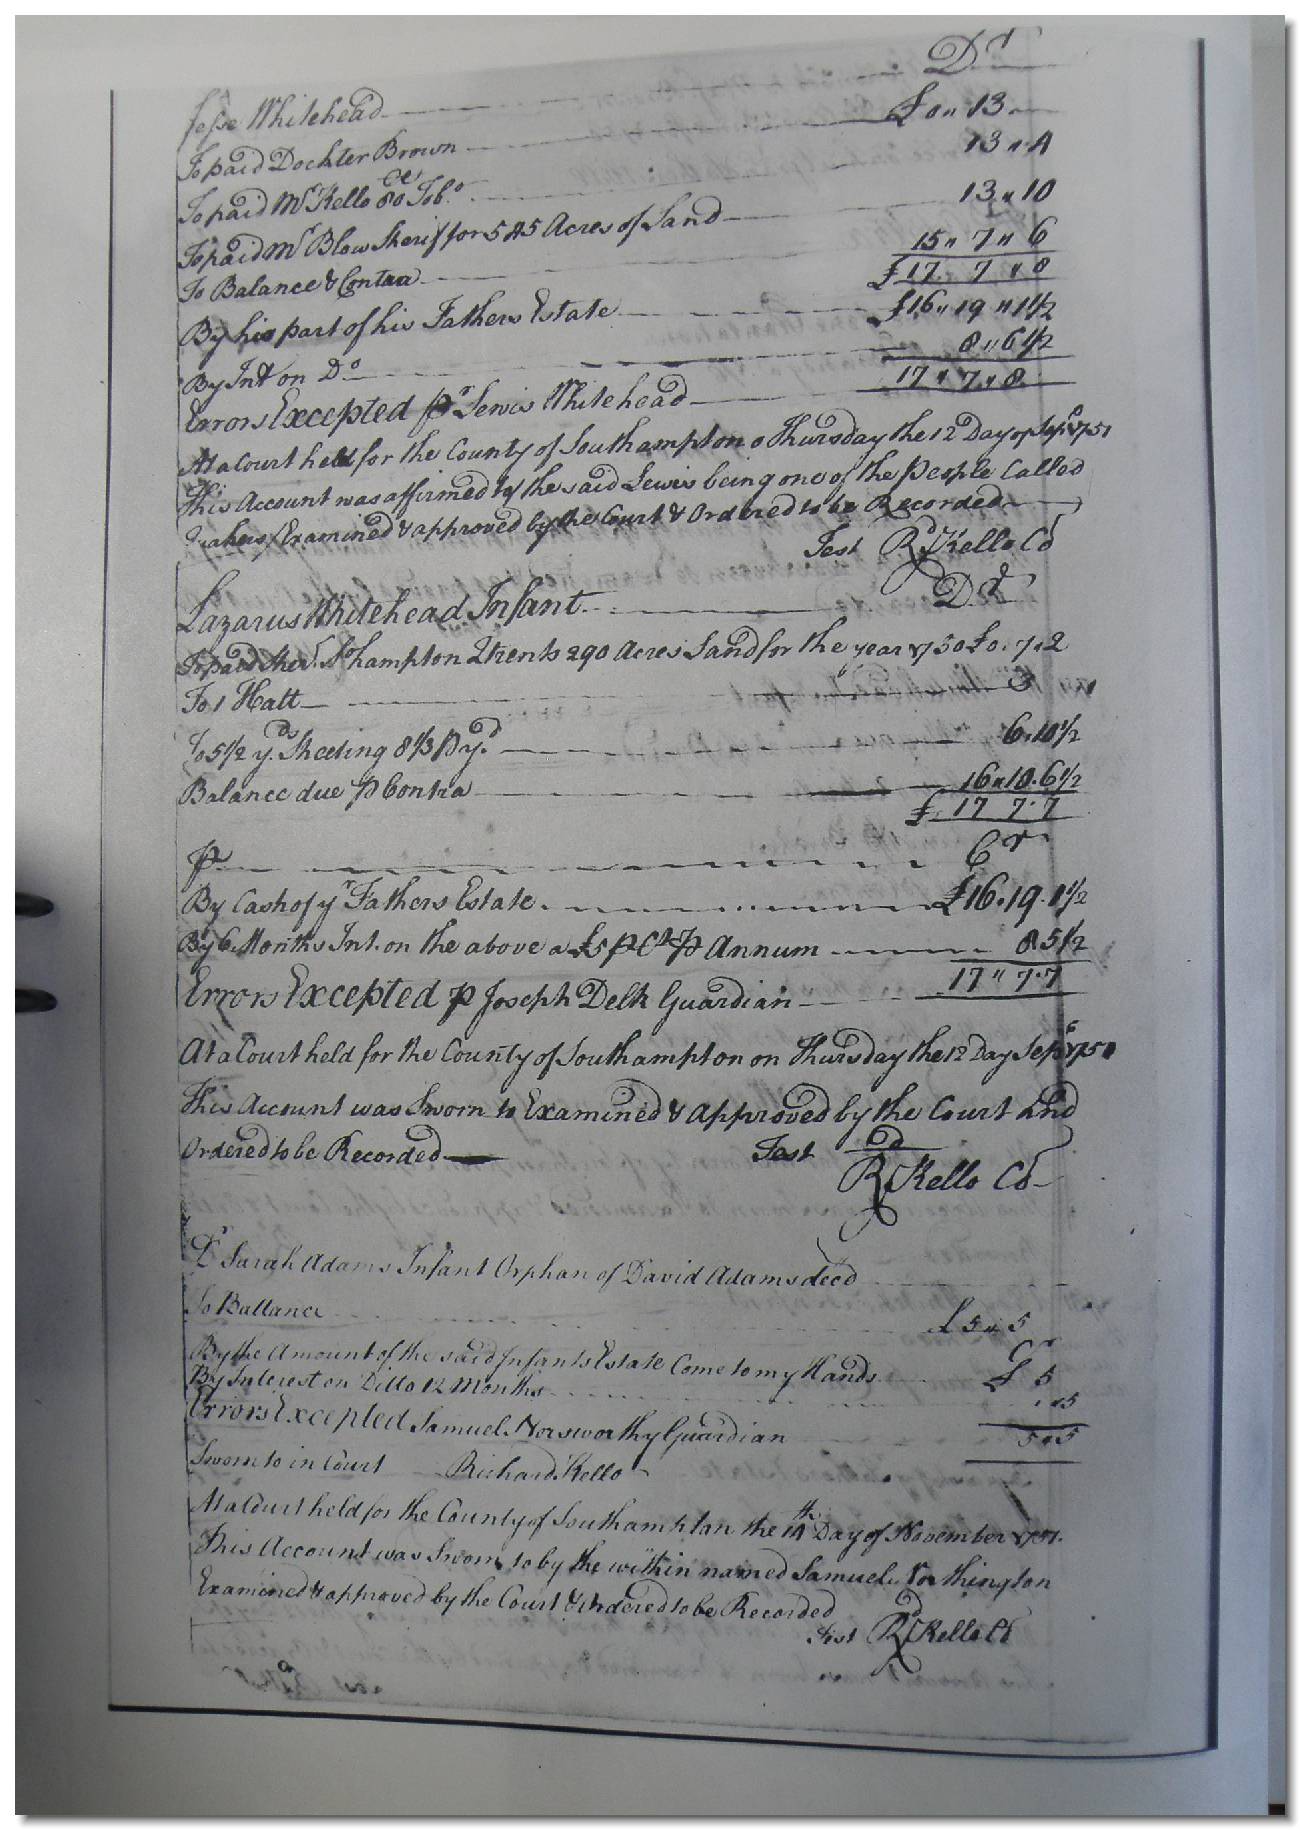 Dr
Jesse Whitehead
To paid Dochter Brown £ 0 " 13
To paid Mr Kello 80 Tobo 13 " 4
To paid Mr Blow Sherif for 545 Acres of Land 13 " 10
To Balance & Contra 15 " 7 " 6
£ 17 . 7 " 8
By his part of his Fathers Estate £16 " 19 " 1 1/2
By Int on Do 8 " 6 1/2
17 " 7 " 8
Errors Excepted pr Lewis Whitehead
At a Court held for the County of Southampton o Thursday the 12 Day of Sepr 1751
This Account was affirmed by the said Lewis being one of the People Called
Quakers Examined & approved by the Court & Ordered to be Recorded
Test Rd Kello Cl
Lazarus Whitehead Infant Dr
To paid Southampton Qtrents 290 Acres Land for the year 1750 £0 . 7 . 2
To 1 Hatt 3
To 5 1/2 yds Sheeting yd 6 . 10 1/2
Balance due P Contra 16 " 10 . 6 1/2
£ 17 7 . 7
P Cr
By Cash of yr Fathers Estate £16 . 19 . 1 1/2
By 6 Months Int. on the above a £5 P Ct P Annum 8 . 5 1/2
17 " 7 . 7
Errors Excepted P Joseph Delk Guardian
At a Court held for the County of Southampton on Thursday the 12 Day Sepr 1751
This Account was Sworn to Examined & approved by the Court and
Ordered to be Recorded Test Rd Kello Cl
Dr Sarah Adams Infant Orphan of David Adams decd
To Ballance £ 5 " 5
Cr
By the Amount of the said Infants Estate Come to my Hands £ 5
By Interest on Ditto 12 Months " 5
5 " 5
Errors Excepted Samuel Norsworthy Guardian
Sworn to in Court Richard Kello
At a Court held for the County of Southampton the 14th Day of November 1751.
This Account was Sworn to by the within named Samuel
Examined & approved by the Court & Ordered to be Recorded
Test Rd Kello Cl